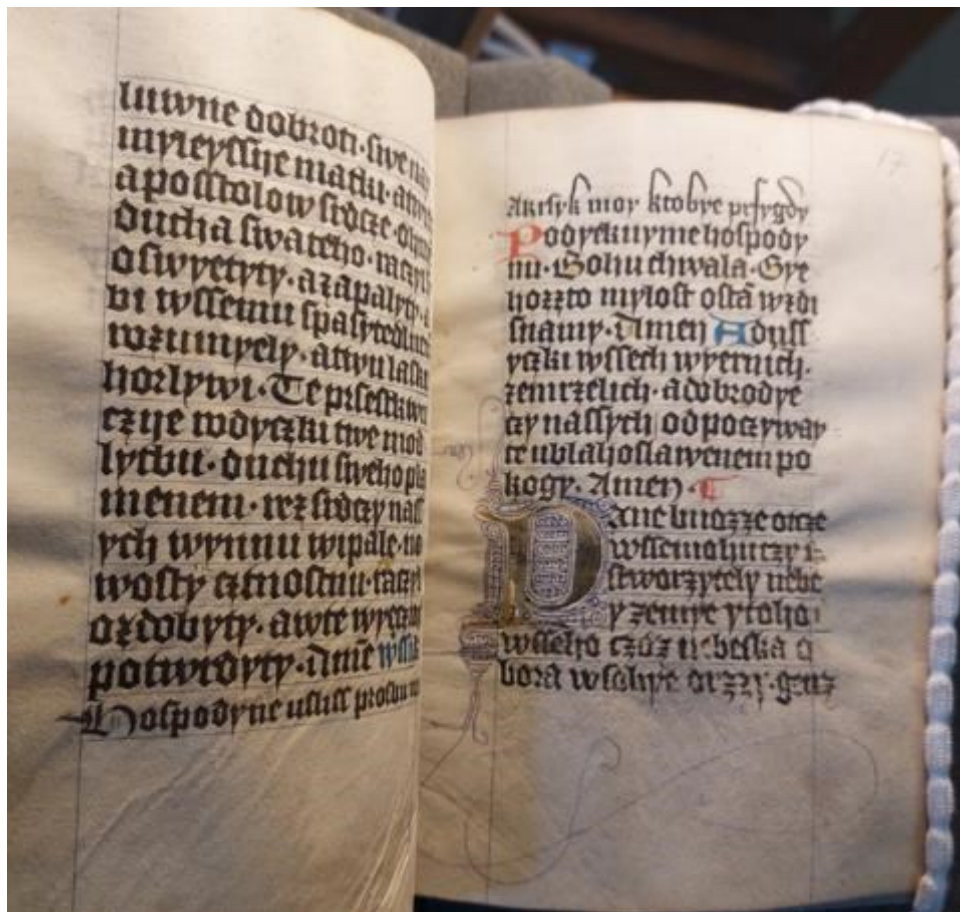 luwne dobroti · swe na
myleyssije matky · a
aposstolow srdcze · 
ducha swateho · raczyl
oswyetyty · a zapalyty ·
bi wssemu spasytedlne
wzrumyely · a twu lasku
horlywi · Te
czije wdyczki twe mod
lytbu · duchu sweho pla
menem · wz srdczy nass
ych wynnu wipale · no
wosty cztnostmi raczyl
ozdobyty · a wte wyerzie
potwrdyty · Amē
Hospodyne usliss prosbu
A krsyk moy ktobye przygdy
Podyekuymehospody
nu · Bohu chwala · Gye
hozzto mylost ostā wzdi
snamy · Amen A duss
yczki wssech wyernich ·
zemrzelich · a dobrodye
czy nassych odpoczyway
te ublahoslawenem po
kogy · Amen ·
Pane buozze otcze
wssemohuczy
stworzytely nebe
y zemye y toho
wsseho czoz nebeska o
bora